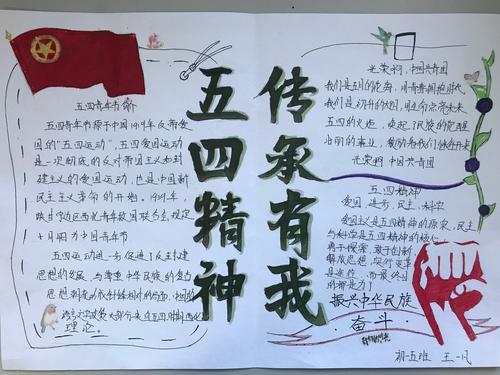 五四精神
传承有我
五四青年节
五四青年节源于中国1919年反帝爱
国的"五四运动",五四爱国运动
是一次彻底的反对帝国主义和封
建主义的爱国运动,也是中国新
民主主义革命的开始。1939年,
陕甘宁边区西北青年救国联合会规定
5月4日为中国青年节
五四运动进一步促进了反封建
思想的发展
理论。
光荣啊,中国共青团
我们是五月的花海,用青春拥抱时代
我们是初升的太阳,用生命点亮未来
五四的火炬,唤起了民族的觉醒
壮丽的事业,激励着我们继往开来
光荣啊,中国共青团
五四精神
爱国、进步、民主、科学
爱国主义是五四精神的源泉,民主
与科学是五四精神的核心,
勇于探索、敢于创新
解放思想、实行变革
振兴中华民族
奋斗
初一五班 王一凡